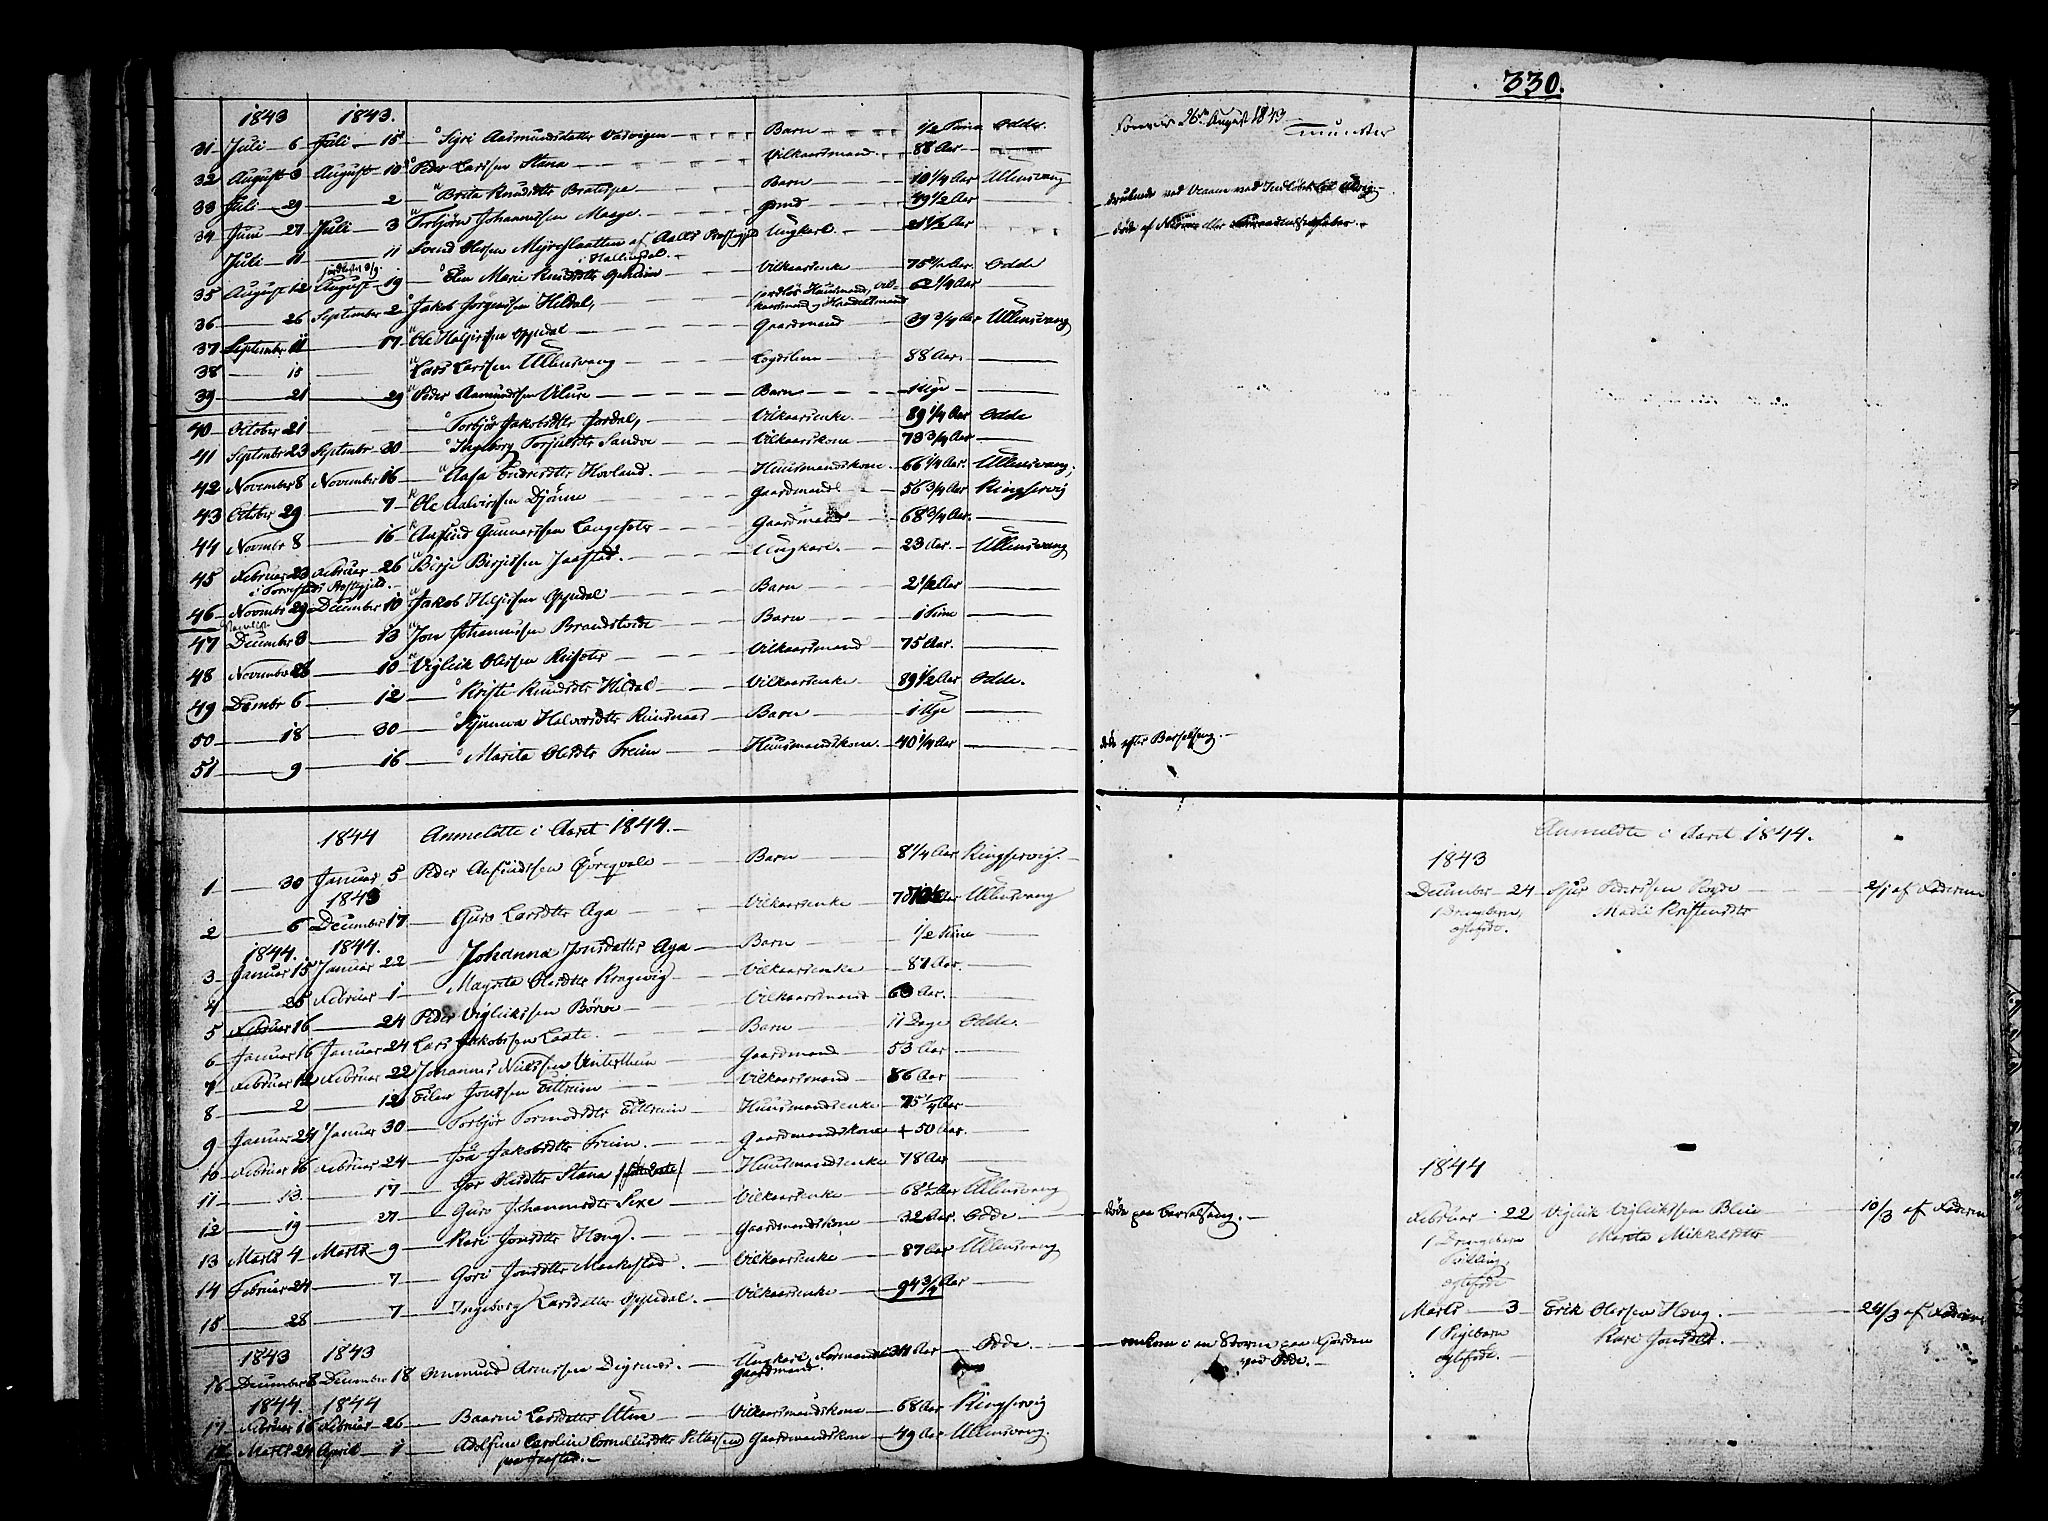 330.
1843 1843.
31 Juli 6 Juli 15 Sigri Aadmundsdatter Vadvigen Barn 1/2 Time Odde
32 August 3 August 10 Peder Larssen Stana Vilkaarsmand 88 Aar
33 Juli 29 2 Brita Knudsdtter Bratespe Barn 10 1/4 Aar Ullensvang
34 Juni 27 Juli 3 Torbjörn Johannessen Maage 49 1/2 Aar
Juli 11 11 Svend Olessen af Aalls Præstegjeld Ungkarl 21 1/2 Aar
i Hallingdal
35 August 12 August 19 Elen Marie Knudsdtter Vilkaarsenke 75 Aar Odde
36 26 September 2 Jakob Jörgenssen Hildal, jordlös Huusmand, Vil- 62 1/4 Aar
kaarsmand og Handelsmand
37 September 11 17 Ole Helgessen Oppedal Gaardmand 39 3/4 Aar Ullensvang
38 15 Lars Larssen Ullensvang Logdslem 88 Aar.
39 21 29 Peder Aamundssen Vilure Barn 1 Uge
40 October 21 Torbjör Jakobsdtter Jordal, Vilkaarsenke 89 1/4 Aar Odde
41 Septembr 23 Septembr 30 Ingeborg Torjulsdtter Sandve Vilkaarskone 73 3/4 Aar
42 November 8 November 16 Aasa Endresdtter Hovland. Huusmandskone 66 1/4 Aar. Ullensvang.
43 October 29 7 Ole Halvorssen Djönne Gaardmand 56 3/4 Aar Kingservig
44 Novembr 8 16 Anfind Gunnarssen Langeseter Gaardmand 68 3/4 Aar.
45 Februar 23 Februar 26 Birje Birjessen Jaastad. Ungkarl. 23 Aar. Ullensvang
i Præstegjeld.
46 Novembr 29 December 10 Jakob Helgessen Oppedal Barn 2 1/2 Aar
47 Decembr 3 13 Jon Johannessen Brandstveit Barn 1 Time
48 Novembr 28 10 Vigleik Olessen Reiseter Vilkaarsmand 75 Aar.
49 Decmbr 6 12 Kristi Knudsdtter Hildal Vilkaarsenke 89 1/2 Aar Odde.
50 18 30 Synneva Halvorsdtter Ruusnaes Barn 1 Uge
51 9 16 Marita Olesdtter Freim Huusmandskone. 40 1/4 Aar
26de August 1843
Munster
druknede ved Ulvig
döde af
döde efter Barselseng.
1844 Anmeldte i Aaret 1844.
1 30 Januar 5 Peder Anfindssen Öreqvale Barn 8 1/4 Aar Kingservig.
1843
2 6 December 17 Guro Larsdtter Aga Vilkaarsenke Aar Ullensvang
1844. 1844.
3 Januar 15 Januar 22 Johanna Jonsdatter Aga Barn 1/2 Time
4 25 Februar 1 Magrita Olesdtter Krogevig Vilkaarsenke 87 Aar.
5 Februar 16 24 Peder Vigleikssen Börve Vilkaarsmand 63 Aar.
6 Januar 16 Januar 24 Lars Jakobssen Laate Barn 11 Dage Odde.
7 Februar 12 Februar 22 Johannes Nielssen Vinterthun Gaardmand 53 Aar
8 2 12 Eilev Jonssen Eitreim Vilkaarsmand 86 Aar
9 Januar 24 Januar 30 Torbjör Tormodsdtter Eitreim Huusmandsenke 75 1/4 Aar
10 Februar 16 Februar 24 Joá Jakobsdtter Freim. Gaardmandskone + 50 Aar.
11 13. 17 Gro Olesdtter Stana Huusmandsenke 78 Aar
12 19 27 Guro Johannesdtter Sexe Vilkaarsenke 68 1/2 Aar Ullensvang
13 Marts 4 Marts 9 Kari Jonsdtter Houg. Gaardmandskone 32 Aar. Odde
14 Februar 24 7 Gori Jonsdtter Maakestad. Vilkaarsenke 87 Aar Ullensvang
15 28 7 Ingeborg Larsdatter Oppedal. Vilkaarsenke 94 3/4 Aar
1843 1843
16 December 8 December 18 Ommund Arnessen Digrenes. Ungkarl, Formands 34 Aar Odde.
Gaardmand.
1844. 1844
17 Februar 16 Februar 26 Baarni Larsdatter Utne Vilkaarsmandskone 68 Aar Kingservig
18 Marts 24 April 1 Adolfine Caroline Corneliusdtter Pettersen Gaardmandskone 49 Aar Ullensvang.
paa Jaastad.
döde paa Barselseng.
omkom i en Storm paa Fjorden
ved Odde.
Anmeldte i Aaret 1844.
1843
December 24 Sjur Pederssen Röyde 2/1 af Faderen
1 Drengebarn, Madli Kristensdtter
ægtefödt.
1844
Februar 22 Vigleik Vigleikssen Bleie 10/3 af Faderen
1 Drengebarn Marita Mikkelsdtter
Tvilling,
ægtefödt
Marts 3 Erik Olessen Houg. 24/3 af Faderen
1 Pigebarn Kari Jonsdtter.
ægtefödt.